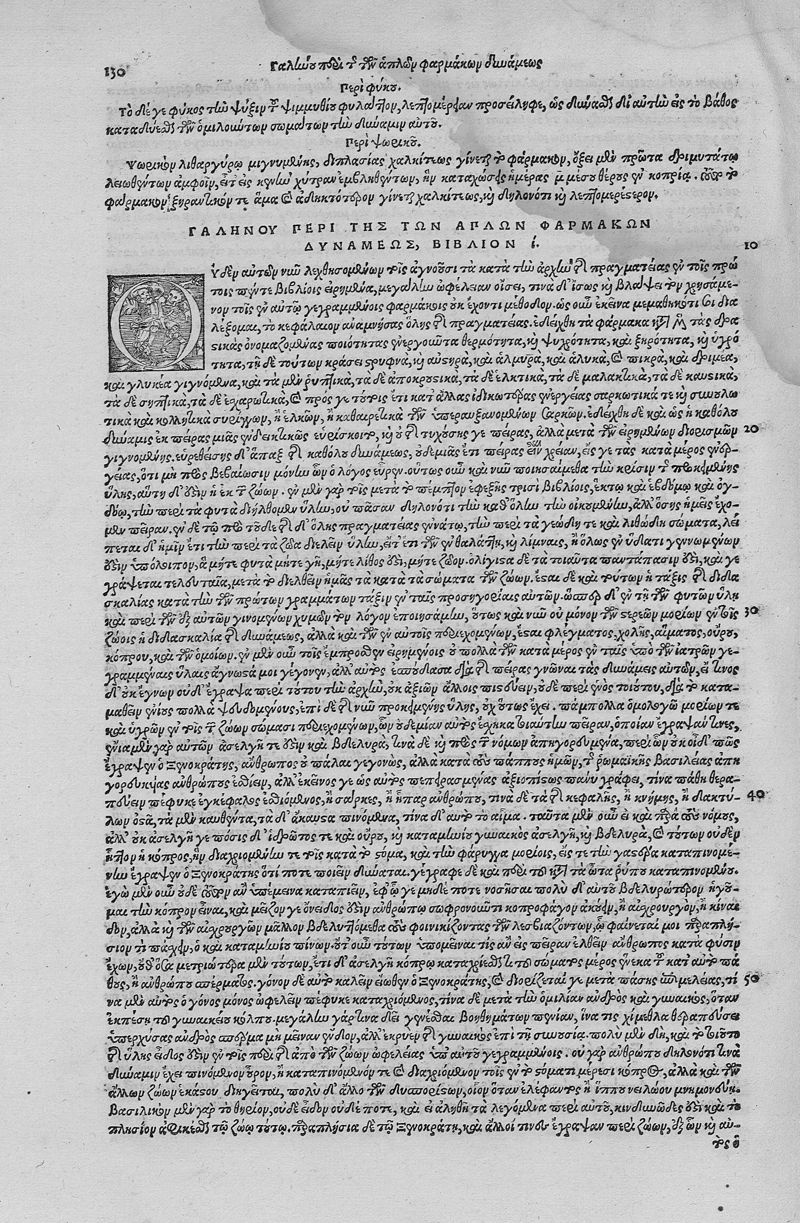 130
Γαληνοῦ περὶ τῆς τῶν ἁπλῶν φαρμάκων δυνάμεως
Περὶ φύκου.
Τὸ δέ γε φῦκος τὴν ψύξιν τοῦ ψιμμυθίου φυλάττον, λεπτομέρειαν προσείληφε, ὡς δύνασθαι δι' αὐτὴν εἰς τὸ βάθος
καταδύεσθαι τῶν ὁμιλούντων σωμάτων τὴν δύναμιν αὐτοῦ.
Περὶ ψωρικοῦ.
Ψωρικὸν λιθαργύρῳ μιγνυμένης, διπλασίας χαλκίτεως γίνεται τὸ φάρμακον, ὄξει μὲν πρῶτα δριμυτάτῳ
λειωθέντων ἀμφοῖν, ἔπειτ' εἰς καινὴν χύτραν ἐμβληθέντων, ἣν καταχώσῃς ἡμέρας μ μέσου θέρους ἐν κοπρίᾳ.
φάρμακον ξηραντικόν τε ἅμα καὶ ἀδηκτότερον γίνεται χαλκίτεως, καὶ δηλονότι καὶ λεπτομερέστερον.
ΓΑΛΗΝΟΥ ΠΕΡΙ ΤΗΣ ΤΩΝ ΑΠΛΩΝ ΦΑΡΜΑΚΩΝ
ΔΥΝΑΜΕΩΣ, ΒΙΒΛΙΟΝ ί.
10
Οὐδὲν αὐτῶν νῦν λεχθησομένων τοῖς ἀγνοοῦσι τὰ κατὰ τὴν ἀρχὴν τῆς πραγματείας ἐν τοῖς πρώ
τοις πέντε βιβλίοις εἰρημένα, μεγάλην ὠφέλειαν οἴσει, τινὰ δ' ἴσως καὶ βλάψει τὸν χρησάμε-
νον τοῖς ἐν αὐτῷ γεγραμμένοις φαρμάκοις οὐκ ἔχοντι μέθοδον. ὡς οὖν ἐκεῖνα μεμαθηκότι σοι δια
λέξομαι, τὸ κεφάλαιον ἀναμνήσας ὅλης τῆς πραγματείας. ἐδείχθη τὰ φάρμακα κατὰ μὲν τὰς δρα
στικὰς ὀνομαζομένας ποιότητας ἐνεργοῦντα θερμότητα, καὶ ψυχρότητα, καὶ ξηρότητα, καὶ ὑγρό
τητα, τῇ δὲ τούτων κράσει στρυφνὰ, καὶ αὐστηρὰ, καὶ ἁλμυρὰ, καὶ ἁλυκὰ, καὶ πικρὰ, καὶ δριμέα,
καὶ γλυκέα γιγνόμενα, καὶ τὰ μὲν ῥυπτικὰ, τὰ δὲ ἀποκρουστικὰ, τὰ δὲ ἑλκτικὰ, τὰ δὲ μαλακτικὰ, τὰ δὲ καυστικὰ,
τὰ δὲ σηπτικὰ, τὰ δὲ ἐσχαρωτικὰ, καὶ πρός γε τούτοις ἔτι κατ' ἄλλας ἰδικωτέρας ἐνεργείας σαρκωτικά τε καὶ συνουλω
τικὰ καὶ κολλητικὰ συρίγγων, ἢ ἑλκῶν, ἢ καθαιρετικὰ τῶν ὑπεραυξανομένων σαρκῶν. ἐδείχθη δὲ καὶ ὡς ἡ καθόλου
δύναμις ἐκ πείρας μιᾶς ἐνδεικτικῶς εὑρίσκοιτο, καὶ οὐ τῆς τυχούσης γε πείρας, ἀλλὰ μετὰ τῶν εἰρημένων διορισμῶν
20
γιγνομένης. εὑρεθείσης δ' ἅπαξ τῆς καθόλου δυνάμεως, οὐδεμιᾶς ἔτι πείρας εἶναι χρείαν, εἴς γε τὰς κατὰ μέρος ἐνερ-
γείας, ὅτι μὴ πρὸς βεβαίωσιν μόνην ὧν ὁ λόγος εὗρεν. οὕτως οὖν καὶ νῦν ποιησόμεθα τὴν κρίσιν τῆς προκειμένης
ὕλης, αὕτη δ' ἐστὶν ἡ ἐκ τῶν ζώων. ἐν μὲν γὰρ τοῖς μετὰ τὸ πέμπτον ἐφεξῆς τρισὶ βιβλίοις, ἕκτῳ καὶ ἑβδόμῳ καὶ ὀγ-
δόῳ, τὴν περὶ τὰ φυτὰ διήλθομεν ὕλην, οὐ πᾶσαν δηλονότι τὴν καθ' ὅλην τὴν οἰκουμένην, ἀλλ' ὅσης ἡμεῖς ἔχο-
μεν πεῖραν. ἐν δὲ τῷ πρὸ τοῦδε τῆς δ' ὅλης πραγματείας ἐνάτῳ, τὴν περὶ τὰ γεώδη τε καὶ λιθώδη σώματα, λεί
πεται δ' ἡμῖν ἔτι τὴν περὶ τὰ ζῶα διελθεῖν ὕλην, εἴτ' ἔτι τῶν ἐν θαλάττῃ, καὶ λίμναις, ἢ ὅλως ἐν ὕδατι γεννωμένων
ἐστὶν ὑπόλοιπον, ἃ μήτε φυτὰ μήτε γῆ, μήτε λίθος ἐστὶ, μήτε ζῶον. ὀλίγιστα δὲ τὰ τοιαῦτα παντάπασίν ἐστι, καὶ γε
γράψεται τελευταῖα, μετὰ τὸ διελθεῖν ἡμᾶς τὰ κατὰ τὰ σώματα τῶν ζώων. ἔσται δὲ καὶ τούτων ἡ τάξις τῆς διδα
σκαλίας κατὰ τὴν τῶν πρώτων γραμμάτων τάξιν ἐν ταῖς προσηγορίαις αὐτῶν. ὥσπερ δ' ἐν τῇ τῶν φυτῶν ὕλῃ
καὶ περὶ τῶν ἐξ αὐτῶν γινομένων χυμῶν τὸν λόγον ἐποιησάμην, οὕτως καὶ νῦν οὐ μόνον τῶν στερεῶν μορίων ἐν τοῖς
30
ζώοις ἡ διδασκαλία τῆς δυνάμεως, ἀλλὰ καὶ τῶν ἐν αὐτοῖς περιεχομένων, ἔσται φλέγματος, χολῆς, αἵματος, οὔρου,
κόπρου, καὶ τῶν ὁμοίων. ἐν μὲν οὖν τοῖς ἔμπροσθεν εἰρημένοις οὐ πολλὰ τῶν κατὰ μέρος ἐν ταῖς ὑπὸ τῶν ἰατρῶν γε-
γραμμέναις ὕλαις ἄγνωστά μοι γέγονεν, ἀλλ' αὐτὸς ἐσπούδασα διὰ τῆς πείρας γνῶναι τὰς δυνάμεις αὐτῶν, εἰ τινος
δ' οὐκ ἔγνων οὐδ' ἔγραψα περὶ τούτου τὴν ἀρχὴν, οὐκ ἀξιῶν ἄλλοις πιστεύειν, οὐδὲ περὶ ἑνὸς τοιούτου, διὰ τὸ κατα-
μαθεῖν ἐνίους πολλὰ ψευδομένους, ἐπὶ δὲ τῆς νῦν προκειμένης ὕλης, οὐχ οὕτως ἔχει. πάμπολλα ὁμολογῶ μορίων τε
καὶ ὑγρῶν ἐν τοῖς τῶν ζώων σώμασι περιεχομένων, ὧν οὐδεμίαν αὐτὸς ἔσχηκα τοιαύτην πεῖραν, ὁποίαν ἔγραψάν τινες,
ἔνια μὲν γὰρ αὐτῶν ἀσελγῆ τέ ἐστιν καὶ βδελυρὰ, τινὰ δὲ καὶ πρὸς τῶν νόμων ἀπηγορευμένα, περὶ ὧν οὐκ οἶδ' ὅπως
ἔγραψεν ὁ Ξενοκράτης, ἄνθρωπος οὐ πάλαι γεγονὼς, ἀλλὰ κατὰ τοὺς πάππους ἡμῶν, τῆς ῥωμαϊκῆς βασιλείας ἀπη
γορευκυίας ἀνθρώπους ἐσθίειν, ἀλλ' ἐκεῖνος γε ὡς αὐτὸς πεπειραμένος ἀξιοπίστως πάνυ γράφει, τίνα πάθη θερα-
πεύειν πέφυκε ἐγκέφαλος ἐσθιόμενος, ἢ σάρκες, ἢ ἧπαρ ἀνθρώπου, τίνα δὲ τὰ τῆς κεφαλῆς, ἢ κνήμης, ἢ δακτύ-
40
λων ὀστᾶ, τὰ μὲν καυθέντα, τὰ δ' ἄκαυστα πινόμενα, τίνα δ' αὐτὸ τὸ αἷμα. ταῦτα μὲν οὖν εἰ καὶ παρὰ τοὺς νόμους,
ἀλλ' οὐκ ἀσελγῆ γε πόσις δ' ἱδρῶτός τε καὶ οὔρου, καὶ καταμηνίου γυναικὸς ἀσελγὴς, καὶ βδελυρὰ, καὶ τούτων οὐδὲν
ἧττον ἡ κόπρος, ἣν διαχριομένην τε τοῖς κατὰ τὸ στόμα, καὶ τὴν φάρυγγα μορίοις, εἴς τε τὴν γαστέρα καταπινομέ-
νην ἔγραψεν ὁ Ξενοκράτης ὅτι ποτε ποιεῖν δύναται. γέγραφε δὲ καὶ περὶ τοῦ κατὰ τὰ ὦτα ῥύπου καταπινομένου.
ἐγὼ μὲν οὖν οὐδὲ τοῦτον ἂν ὑπέμεινα καταπιεῖν, ἐφ' ᾧ γε μηδέ ποτε νοσῆσαι πολὺ δ' αὐτοῦ βδελυρώτερον ἡγοῦ-
μαι τὴν κόπρον εἶναι, καὶ μεῖζόν γε ὄνειδός ἐστιν ἀνθρώπῳ σωφρονοῦντι κοπροφάγον ἀκούειν, ἢ αἰσχρουργὸν, ἢ κίναι
δον, ἀλλὰ καὶ τῶν αἰσχρουργῶν μᾶλλον βδελυττόμεθα τοὺς φοινικίζοντας τῶν λεσβιαζόντων, ᾧ φαίνεταί μοι παραπλή-
σιόν τι πάσχειν, ὁ καὶ καταμηνίου πίνων. οὔτ' οὖν τούτων ὑπομείναι τις ἂν εἰς πεῖραν ἐλθεῖν ἄνθρωπος κατὰ φύσιν
ἔχων, οὔθ' ὅσα μετριώτερα μὲν τούτων, ἔτι δ' ἀσελγῆ κόπρῳ καταχρίεσθαί τι τοῦ σώματος μέρος ἕνεκα τοῦ κατ' αὐτὸ πά
θους, ἢ ἀνθρώπου σπέρματος. γόνον δὲ αὐτὸ καλεῖν εἴωθεν ὁ Ξενοκράτης, καὶ διορίζεταί γε μετὰ πάσης ἐπιμελείας, τί
50
να μὲν αὐτὸς ὁ γόνος μόνος ὠφελεῖν πέφυκε καταχριόμενος, τίνα δὲ μετὰ τὴν ὁμιλίαν ἀνδρὸς καὶ γυναικὸς, ὅταν
ἐκπέσῃ τοῦ γυναικείου κόλπου. μεγάλην γὰρ τινα δεῖ γενέσθαι βοηθημάτων πενίαν, ἵνα τις χίμεθλα θεραπεύσει
ὑπερχύσας ἀνδρὸς σπέρμα μὴ μεῖναν ἔνδον, ἀλλ' ἐκρυὲν τῆς γυναικὸς ἐπὶ τῇ συνουσίᾳ. πολὺ μὲν δὴ, καὶ τὸ τοιοῦτο
τῆς ὕλης εἶδός ἐστιν ἐν τοῖς περὶ τῆς ἀπὸ τῶν ζώων ὠφελείας ὑπ' αὐτοῦ γεγραμμένοις. οὐ γὰρ ἀνθρώπου δηλονότι τινὰ
δύναμιν ἔχει πινόμενον οὖρον, ἢ καταπινόμενόν τε καὶ διαχριόμενον τοῖς ἐν στόματι μέρεσι κόπρος, ἀλλὰ καὶ τῶν
ἄλλων ζώων ἑκάστου διηγεῖται, πολὺ δ' ἄλλο τῶν δυσπορίστων, οἷον ὅταν ἐλέφαντος ἢ ἵππου νειλώου μνημονεύῃ.
βασιλίσκον μὲν γὰρ τὸ θηρίον, οὐδὲ εἶδον οὐδέποτε, καὶ εἰ ἀληθῆ τὰ λεγόμενα περὶ αὐτοῦ, κινδυνῶδές ἐστι καὶ τὸ
πλησίον ἀφικέσθαι τῷ ζώῳ τούτῳ. παραπλήσια δὲ τῷ Ξενοκράτῃ, καὶ ἄλλοι τινὲς ἔγραψαν περὶ ζώων, ἐξ ὧν καὶ αὐ-
τὸς ὁ